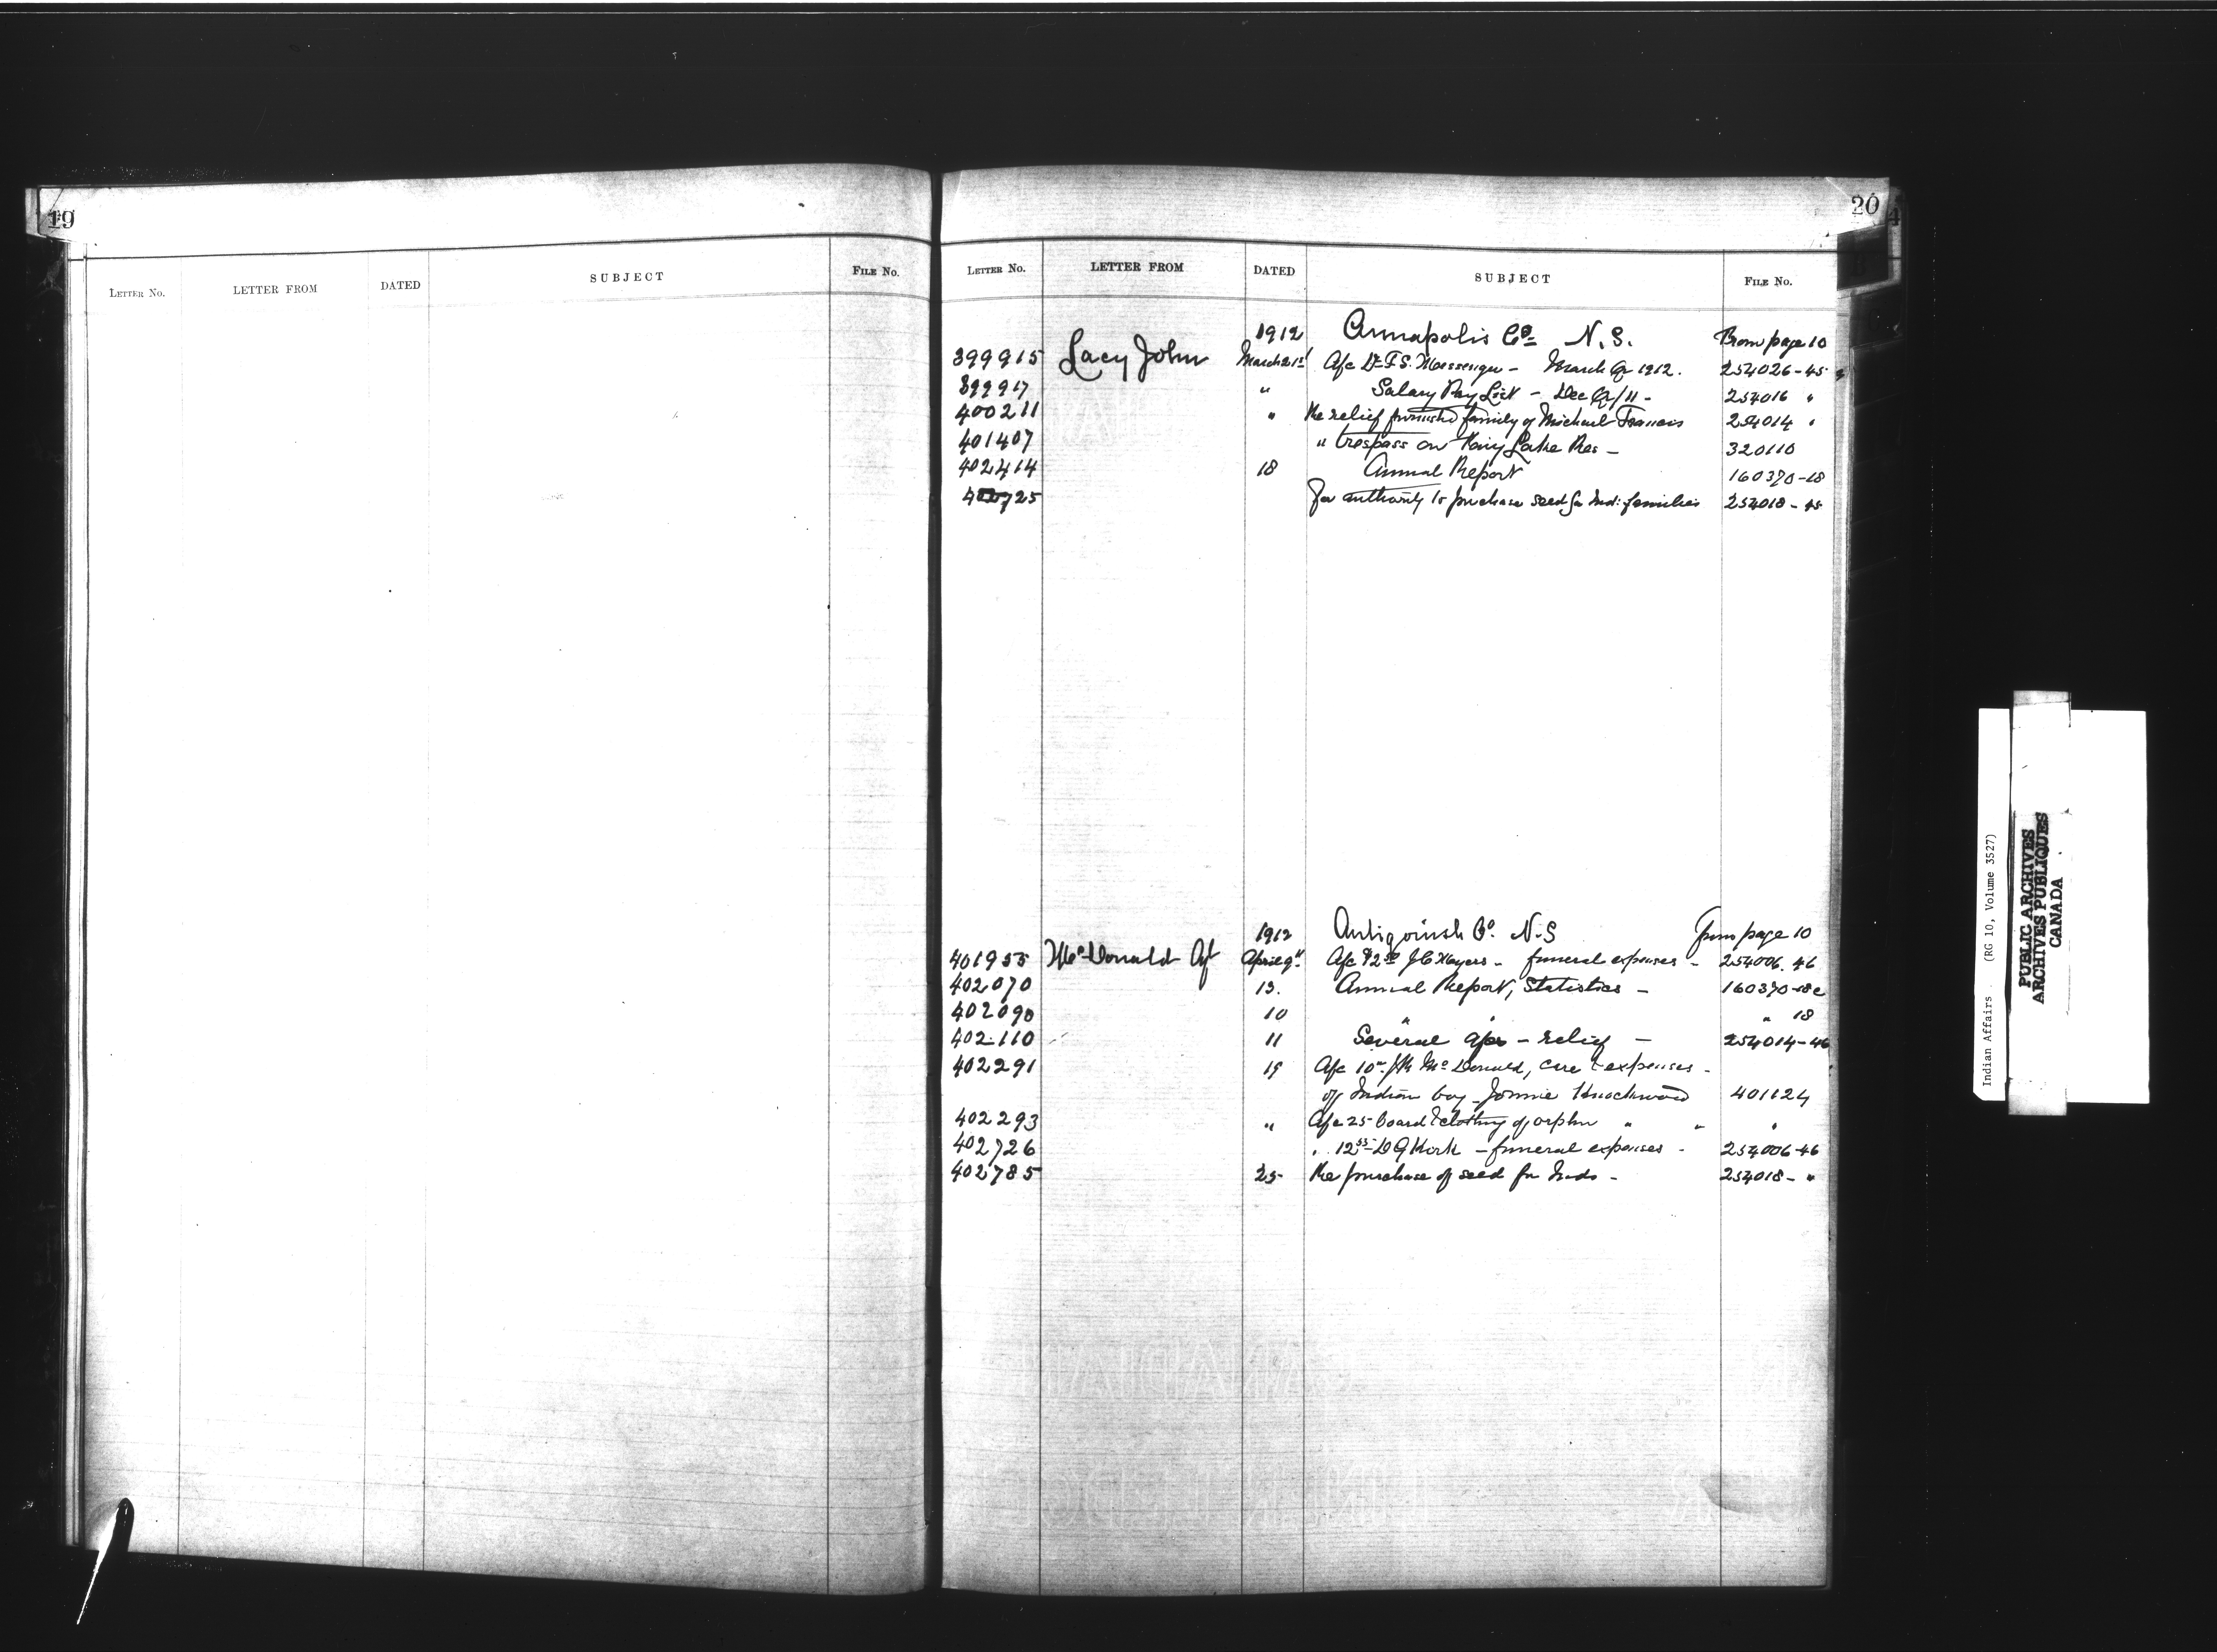 19
LETTER No. LETTER FROM DATED SUBJECT FILE No.
20
LETTER No. LETTER FROM DATED SUBJECT FILE No.
1912 Annapolis Co. N.S. From page 10
399915 Lacy John March 21st A/c Dr F.S. Messenger - March Qr 1912. 254026-45
399917 " Salary Pay List - Dec Qr/11 - 254016 "
400211 " Re relief furnished family of Michael Francis 254014 "
401407 " trespass on Fairy Lake Res - 320110
402414 18 Annual Report 160370-18
725 For authority to purchase seed for Ind: families 254018-45
1912 Antigonish Co. N.S from page 10
401955 McDonald Agt April 9" A/c $2 J C Meyers - funeral expenses - 254006.46
402070 13. Annual Report, Statistics - 160370-18c
402090 10 " " " 18
402110 11 Several a/cs - relief - 254014-46
402291 19 A/c 10 McDonald, care & expenses -
of Indian boy - Jonnie Knockwood 401124
402293 " A/c 25- board & clothing of orphan " " "
402726 " 12 D G Kirk - funeral expenses - 254006-46
402785 25 Re purchase of seed for Inds - 254018- "
Indian Affairs. (RG 10, Volume 3527)
PUBLIC ARCHIVES
ARCHIVES PUBLIQUES
CANADA